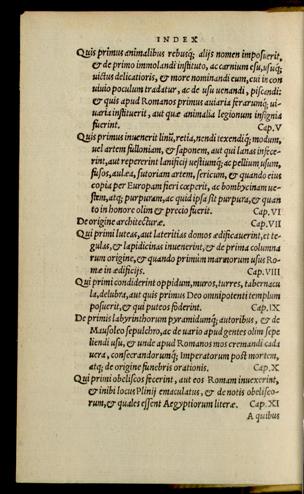 INDEX
Quis primus animalibus rebusq; alijs nomen imposuerit,
& de primo immolandi instituto, ac carnium esu, usuq;
uictus delicatioris, & more nominandi eum, cui in con
uiuio poculum tradatur, ac de usu uenandi, piscandi:
& quis apud Romanos primus auiaria ferarumq; ui-
uaria instituerit, aut quæ animalia legionum insignia
fuerint. Cap. V
Quis primus inuenerit linū, retia, nendi texendiq; modum,
uel artem fulloniam, & saponem, aut qui lanas infece-
rint, aut repererint lanificij uestiumq; ac pellium usum,
fusos, aulæa, sutoriam artem, sericum, & quando eius
copia per Europam fieri cœperit, ac bombycinam ue-
stem, atq; purpuram, ac quid ipsa sit purpura, & quan
to in honore olim & precio fuerit. Cap. VI
De origine architecturæ. Cap. VII
Qui primi luteas, aut lateritias domos ædificauerint, et te-
gulas, & lapidicinas inuenerint, & de prima columna
rum origine, & quando primùm marmorum usus Ro-
mæ in ædificijs. Cap. VIII
Qui primi condiderint oppidum, muros, turres, tabernacu
la, delubra, aut quis primus Deo omnipotenti templum
posuerit, & qui puteos foderint. Cap. IX
De primis labyrinthorum pyramidumq; autoribus, & de
Mausoleo sepulchro, ac de uario apud gentes olim sepe
liendi usu, & unde apud Romanos mos cremandi cada
uera, consecrandorumq; Imperatorum post mortem,
atq; de origine funebris orationis. Cap. X
Qui primi obeliscos fecerint, aut eos Romam inuexerint,
& inibi locus Plinij emaculatus, & de notis obelisco-
rum, & quales essent Aegyptiorum literæ. Cap. XI
A quibus